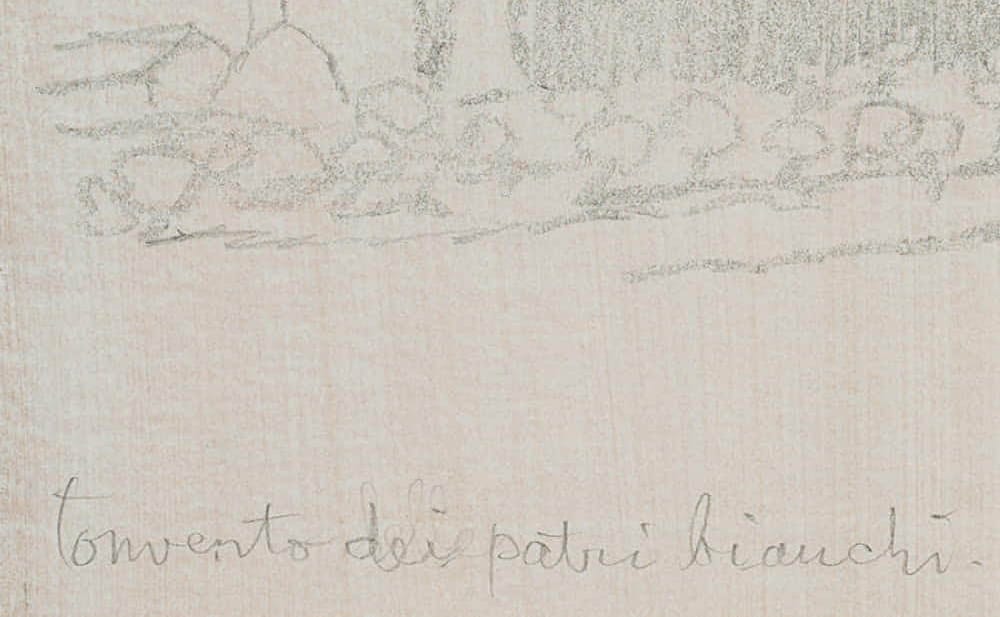 Convento dei patri bianchi.